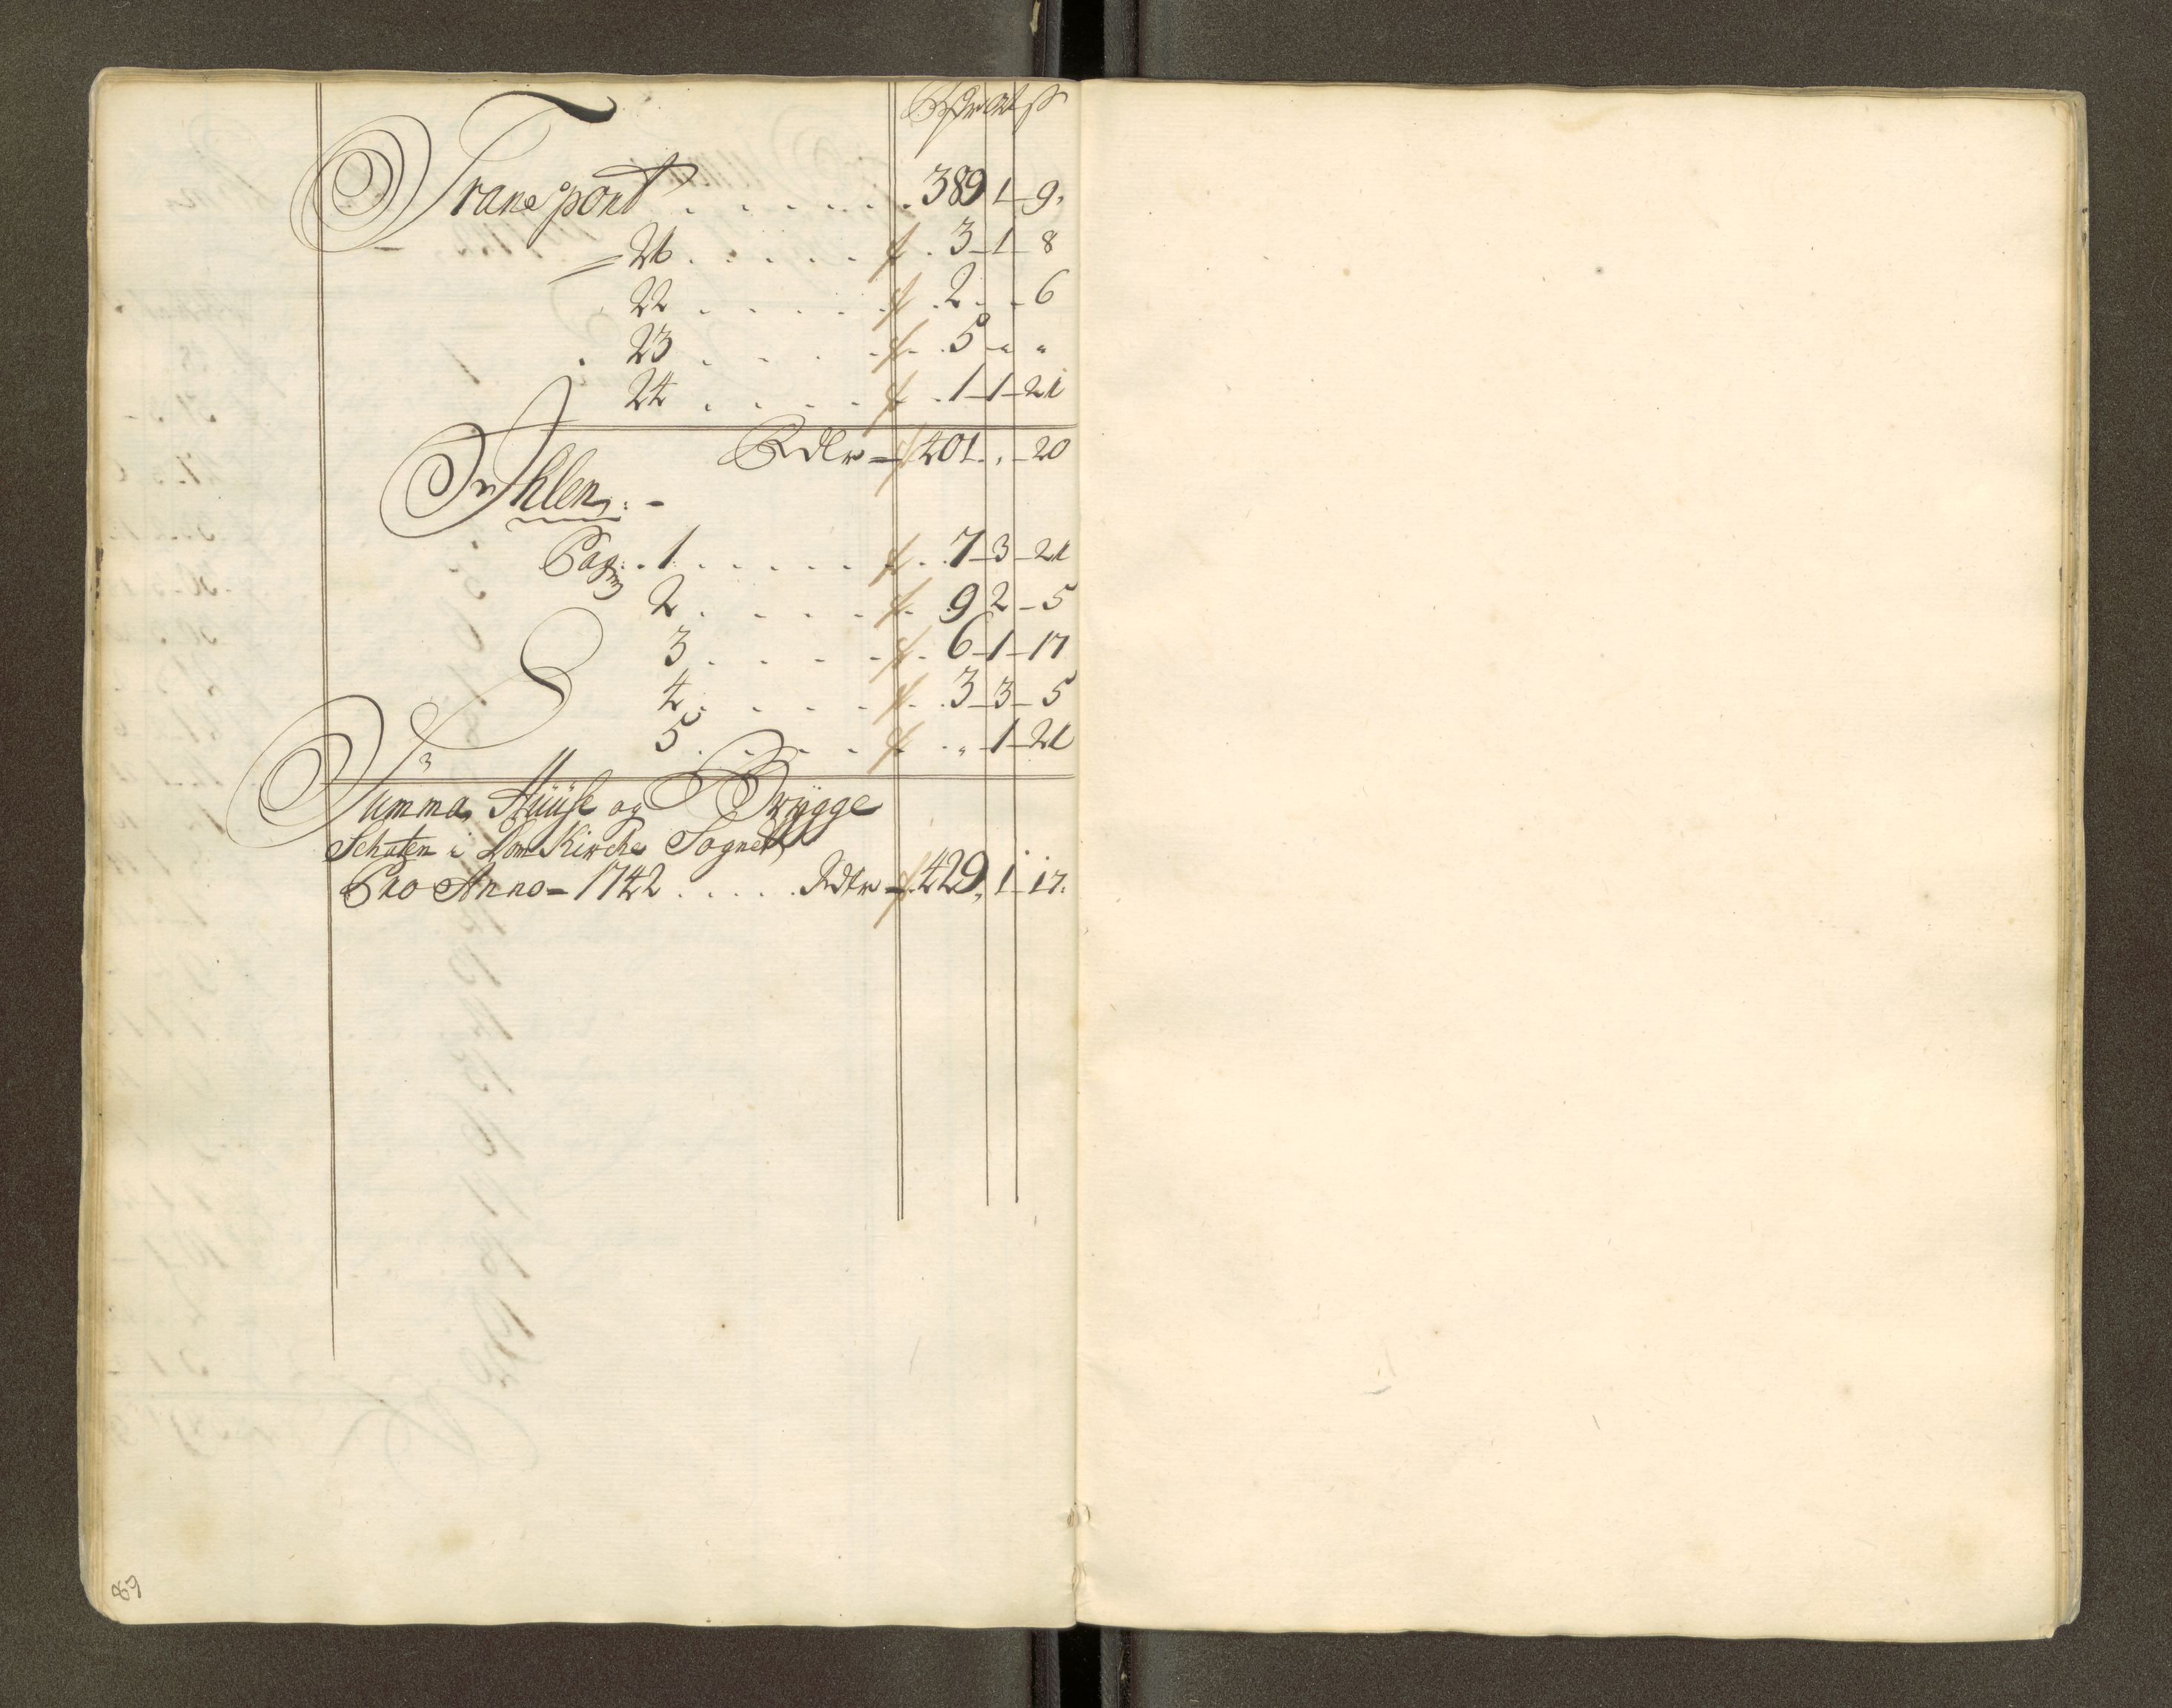 Rdr ort ß
Transport . . . . . . . 389 1 - 9.
21 . . . . . 3 - 1 - 8
22 . . . . . 2 - . - 6
23 . . . . . 5 - " "
24 . . . . . 1 - 1 - 21
Rdlr = 401 . , - 20
Ihlen : -
Pag: . 1 . . . . . 7 - 3 - 21
2 . . . . . 9 2 - 5
3 . . . . . 6 - 1 - 17
4 . . . . . 3 - 3 - 5
5 . . . . . " - 1 - 21
Summa Huuse og Brygge
Schaten i Dom Kirche Sognet
Pro Anno = 1742 . . . . . Rdlr = 429, 1 - 17.
89